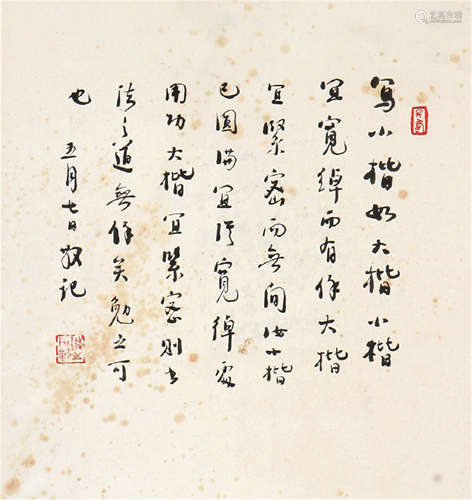 寫小楷如大楷小楷
宜寬綽而有餘大楷
宜緊密而無間汝小楷
已圓滿宜從寬綽處
用功大楷宜緊密則書
法之道無餘矣勉之可
也 五月七日敬記